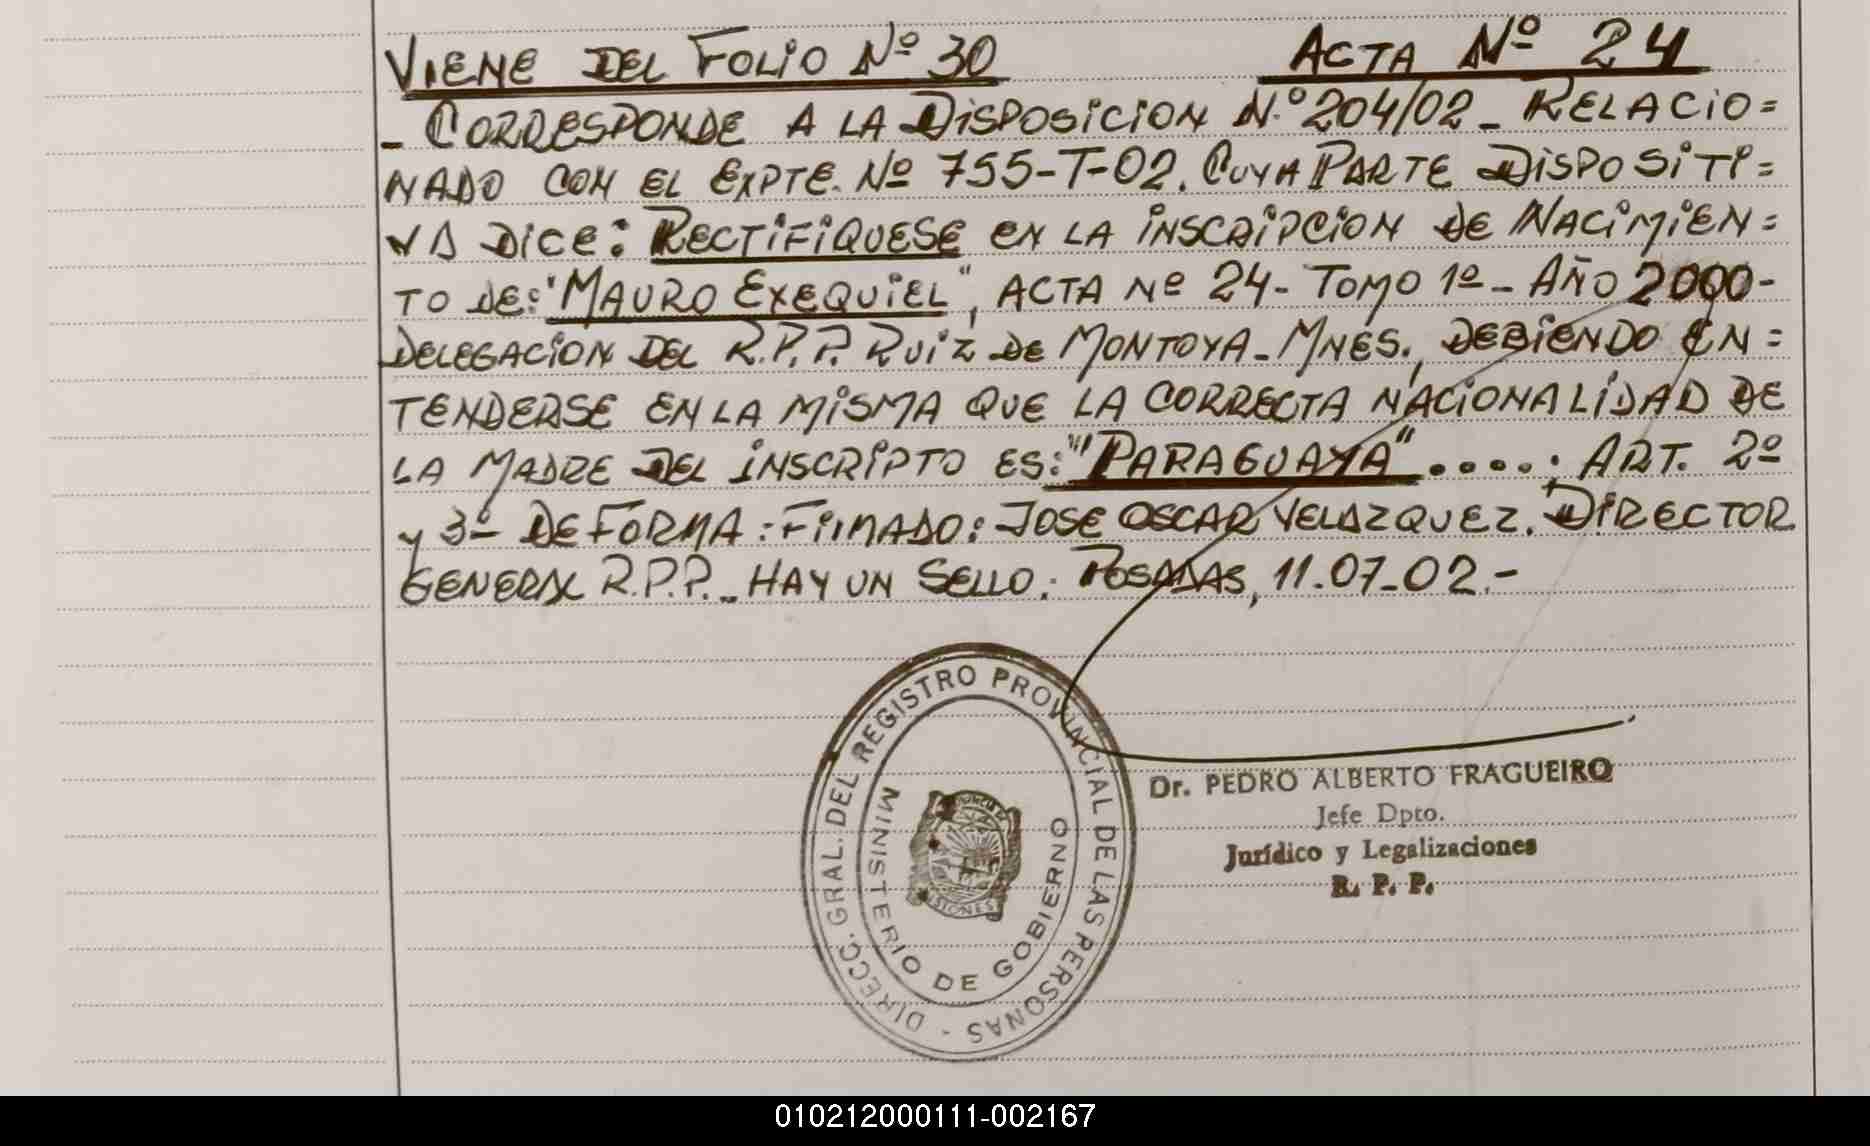 VIENE DEL FOLIO Nº 30 ACTA Nº 24
- CORRESPONDE A LA DISPOSICION N.º 204/02 - RELACIO=
NADO CON EL EXPTE. Nº 755-T-02. CUYA PARTE DISPOSITI=
VA DICE: RECTIFIQUESE EN LA INSCRIPCION DE NACIMIEN=
TO DE: "MAURO EXEQUIEL", ACTA Nº 24- TOMO 1º - AÑO 2000-
DELEGACION DEL R.P.P. RUIZ DE MONTOYA - MNES., DEBIENDO EN=
TENDERSE EN LA MISMA QUE LA CORRECTA NACIONALIDAD DE
LA MADRE DEL INSCRIPTO ES: "PARAGUAYA" ....; ART. 2º
y 3º- DE FORMA: FIRMADO: JOSE OSCAR VELAZQUEZ. DIRECTOR
GENERAL R.P.P. - HAY UN SELLO. POSADAS, 11-07-02.-
DIRECC. GRAL. DEL REGISTRO PROVINCIAL DE LAS PERSONAS -
MINISTERIO DE GOBIERNO
Dr. PEDRO ALBERTO FRAGUEIRO
Jefe Dpto.
Jurídico y Legalizaciones
R. P. P.
010212000111-002167